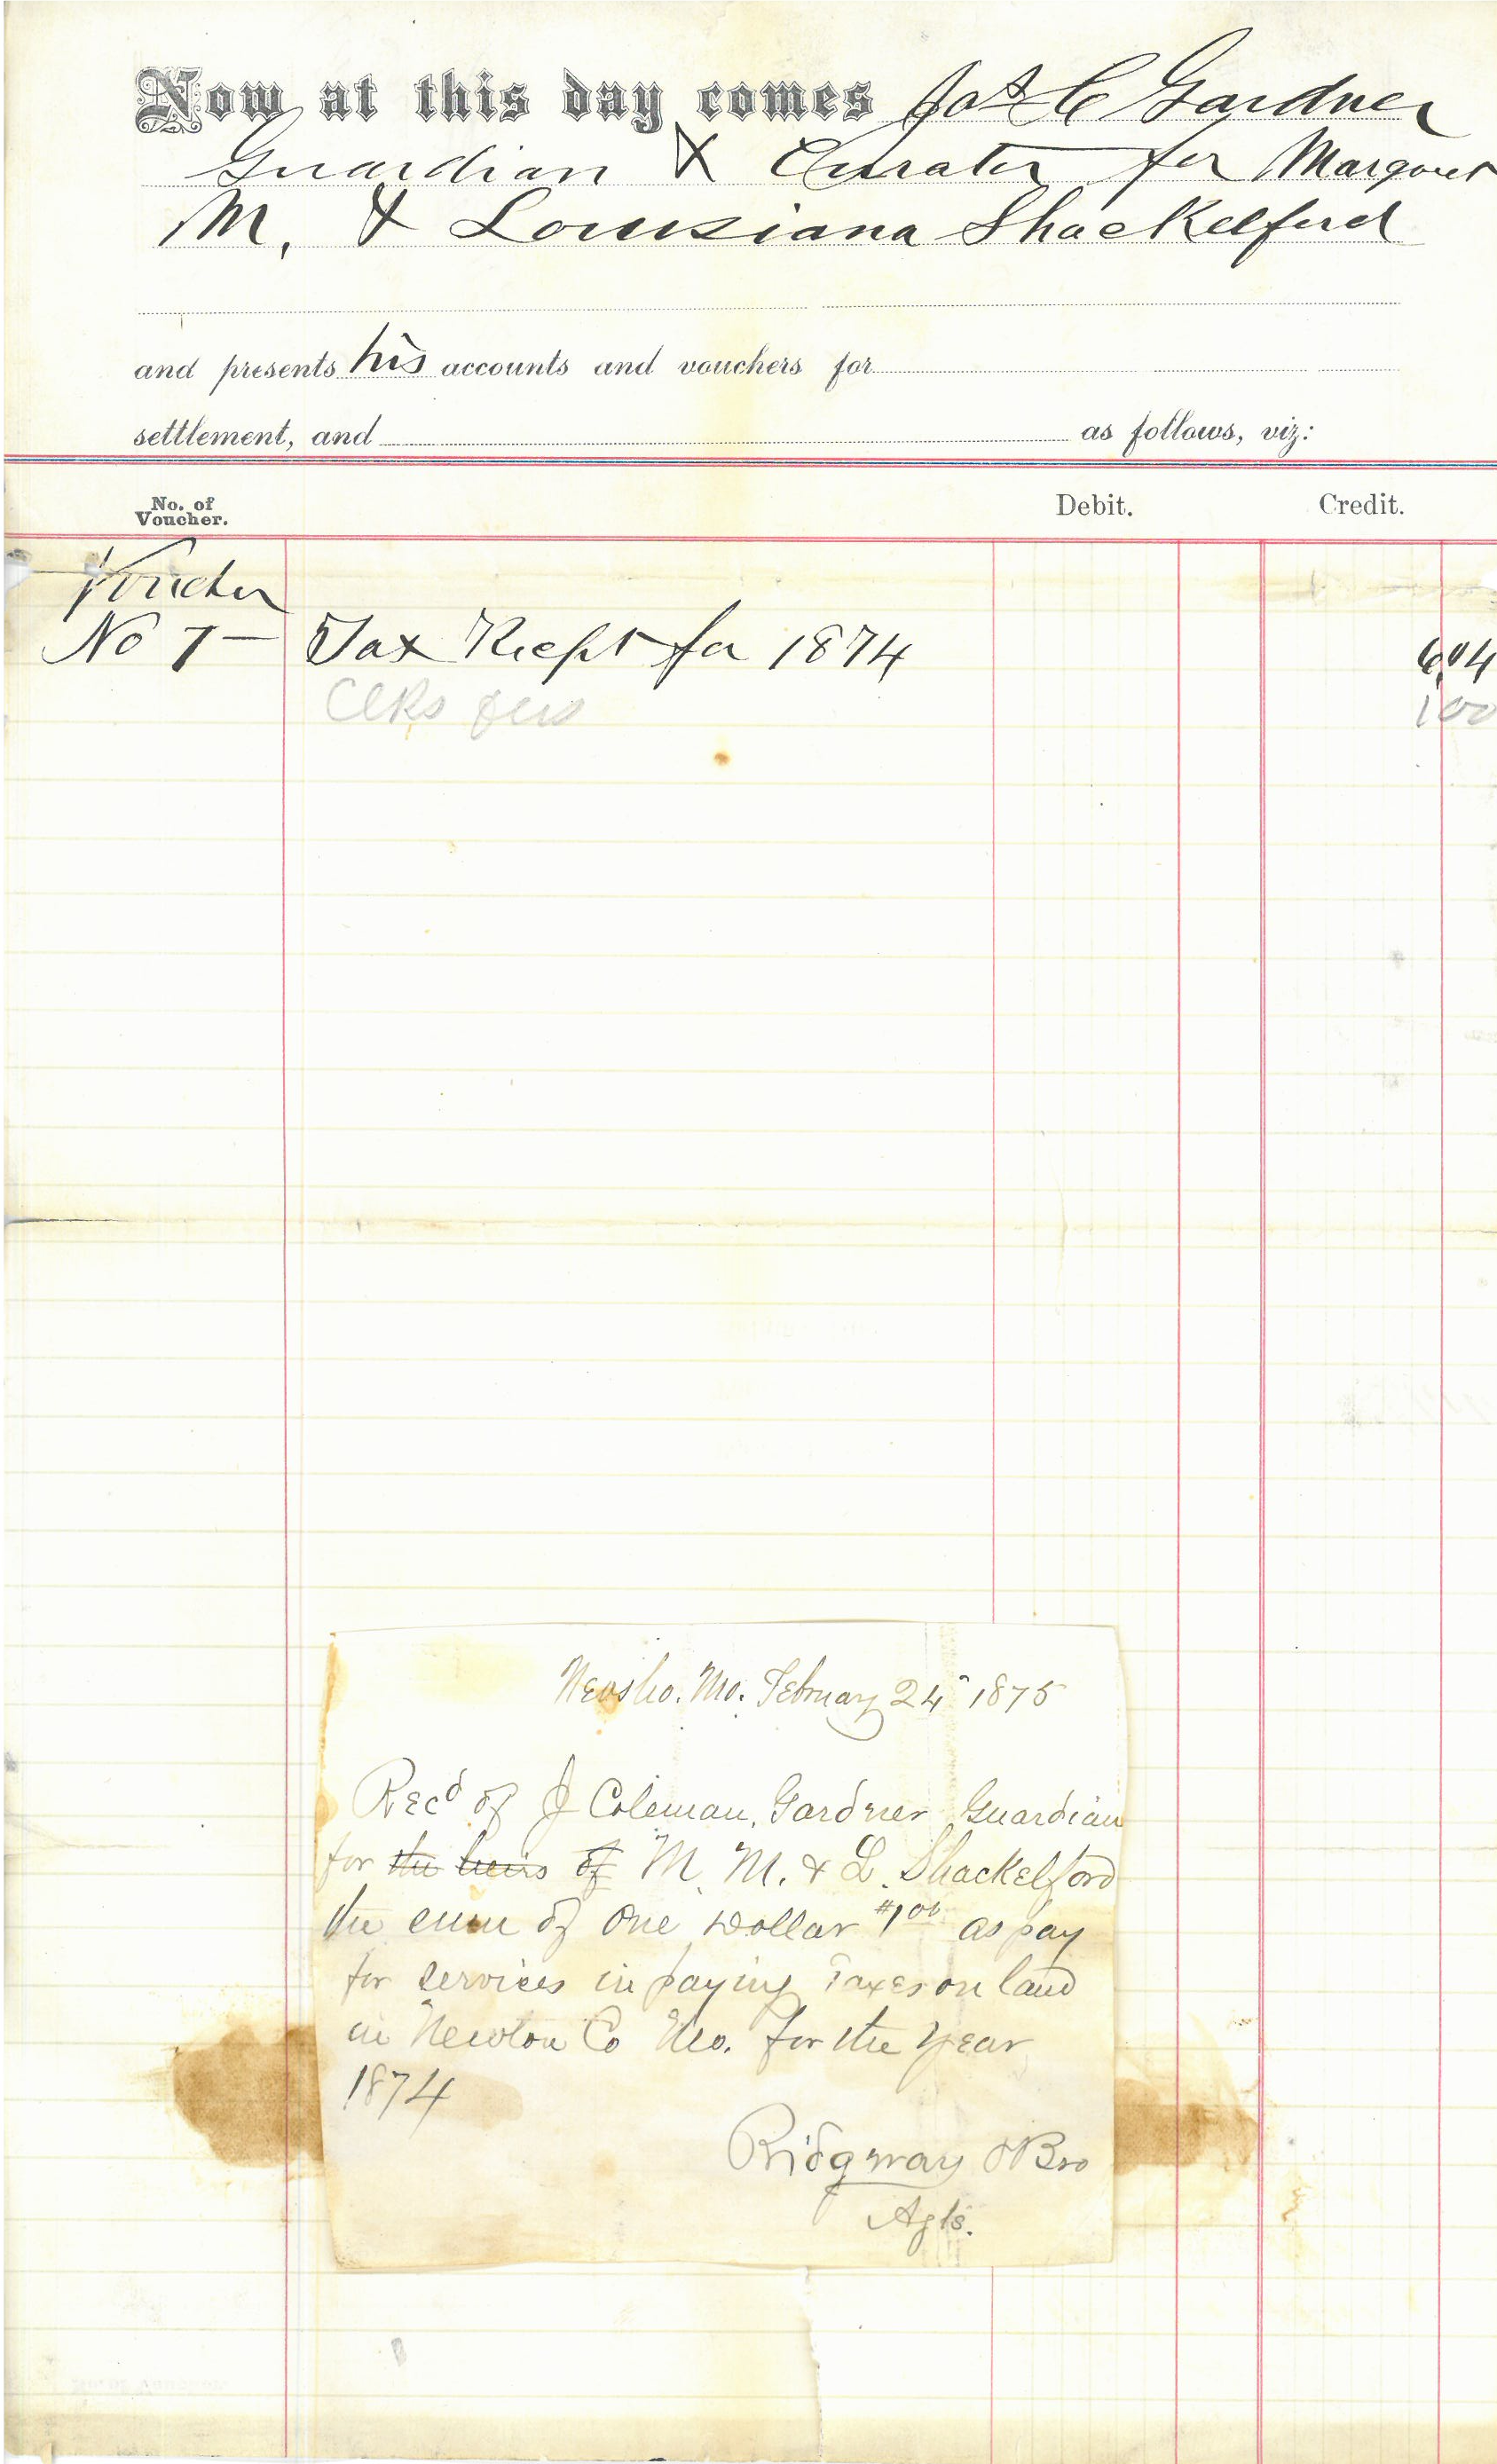 Now at this day comes Jas C Gardner
Guardian & Curator for Margaret
M. & Louisiana Shackelford
and presents his accounts and vouchers for
settlement, and as follows, viz:
No. of Voucher. Debit. Credit.
Voucher
No 7 — Tax Recpt for 1874 6.04
Clks fees 1 00
Neosho. Mo. February 24" 1875
Recd of J Coleman, Gardner Guardian
for the heirs of M. M. & L. Shackelford
the sum of One Dollar $1.00 as pay
for services in paying Taxes on land
in Newton Co Mo. for the Year
1874
Ridgway & Bro
Agts.